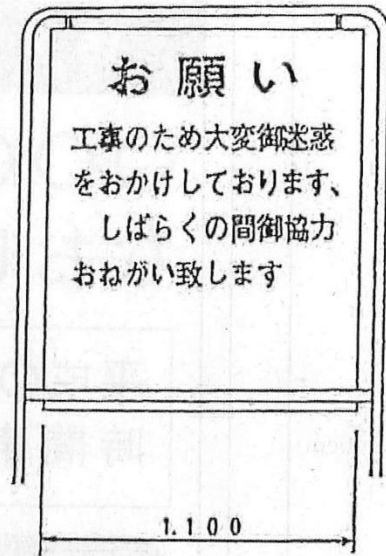 お願い
工事のため大変御迷惑
をおかけしております、
しばらくの間御協力
おねがい致します
1.100